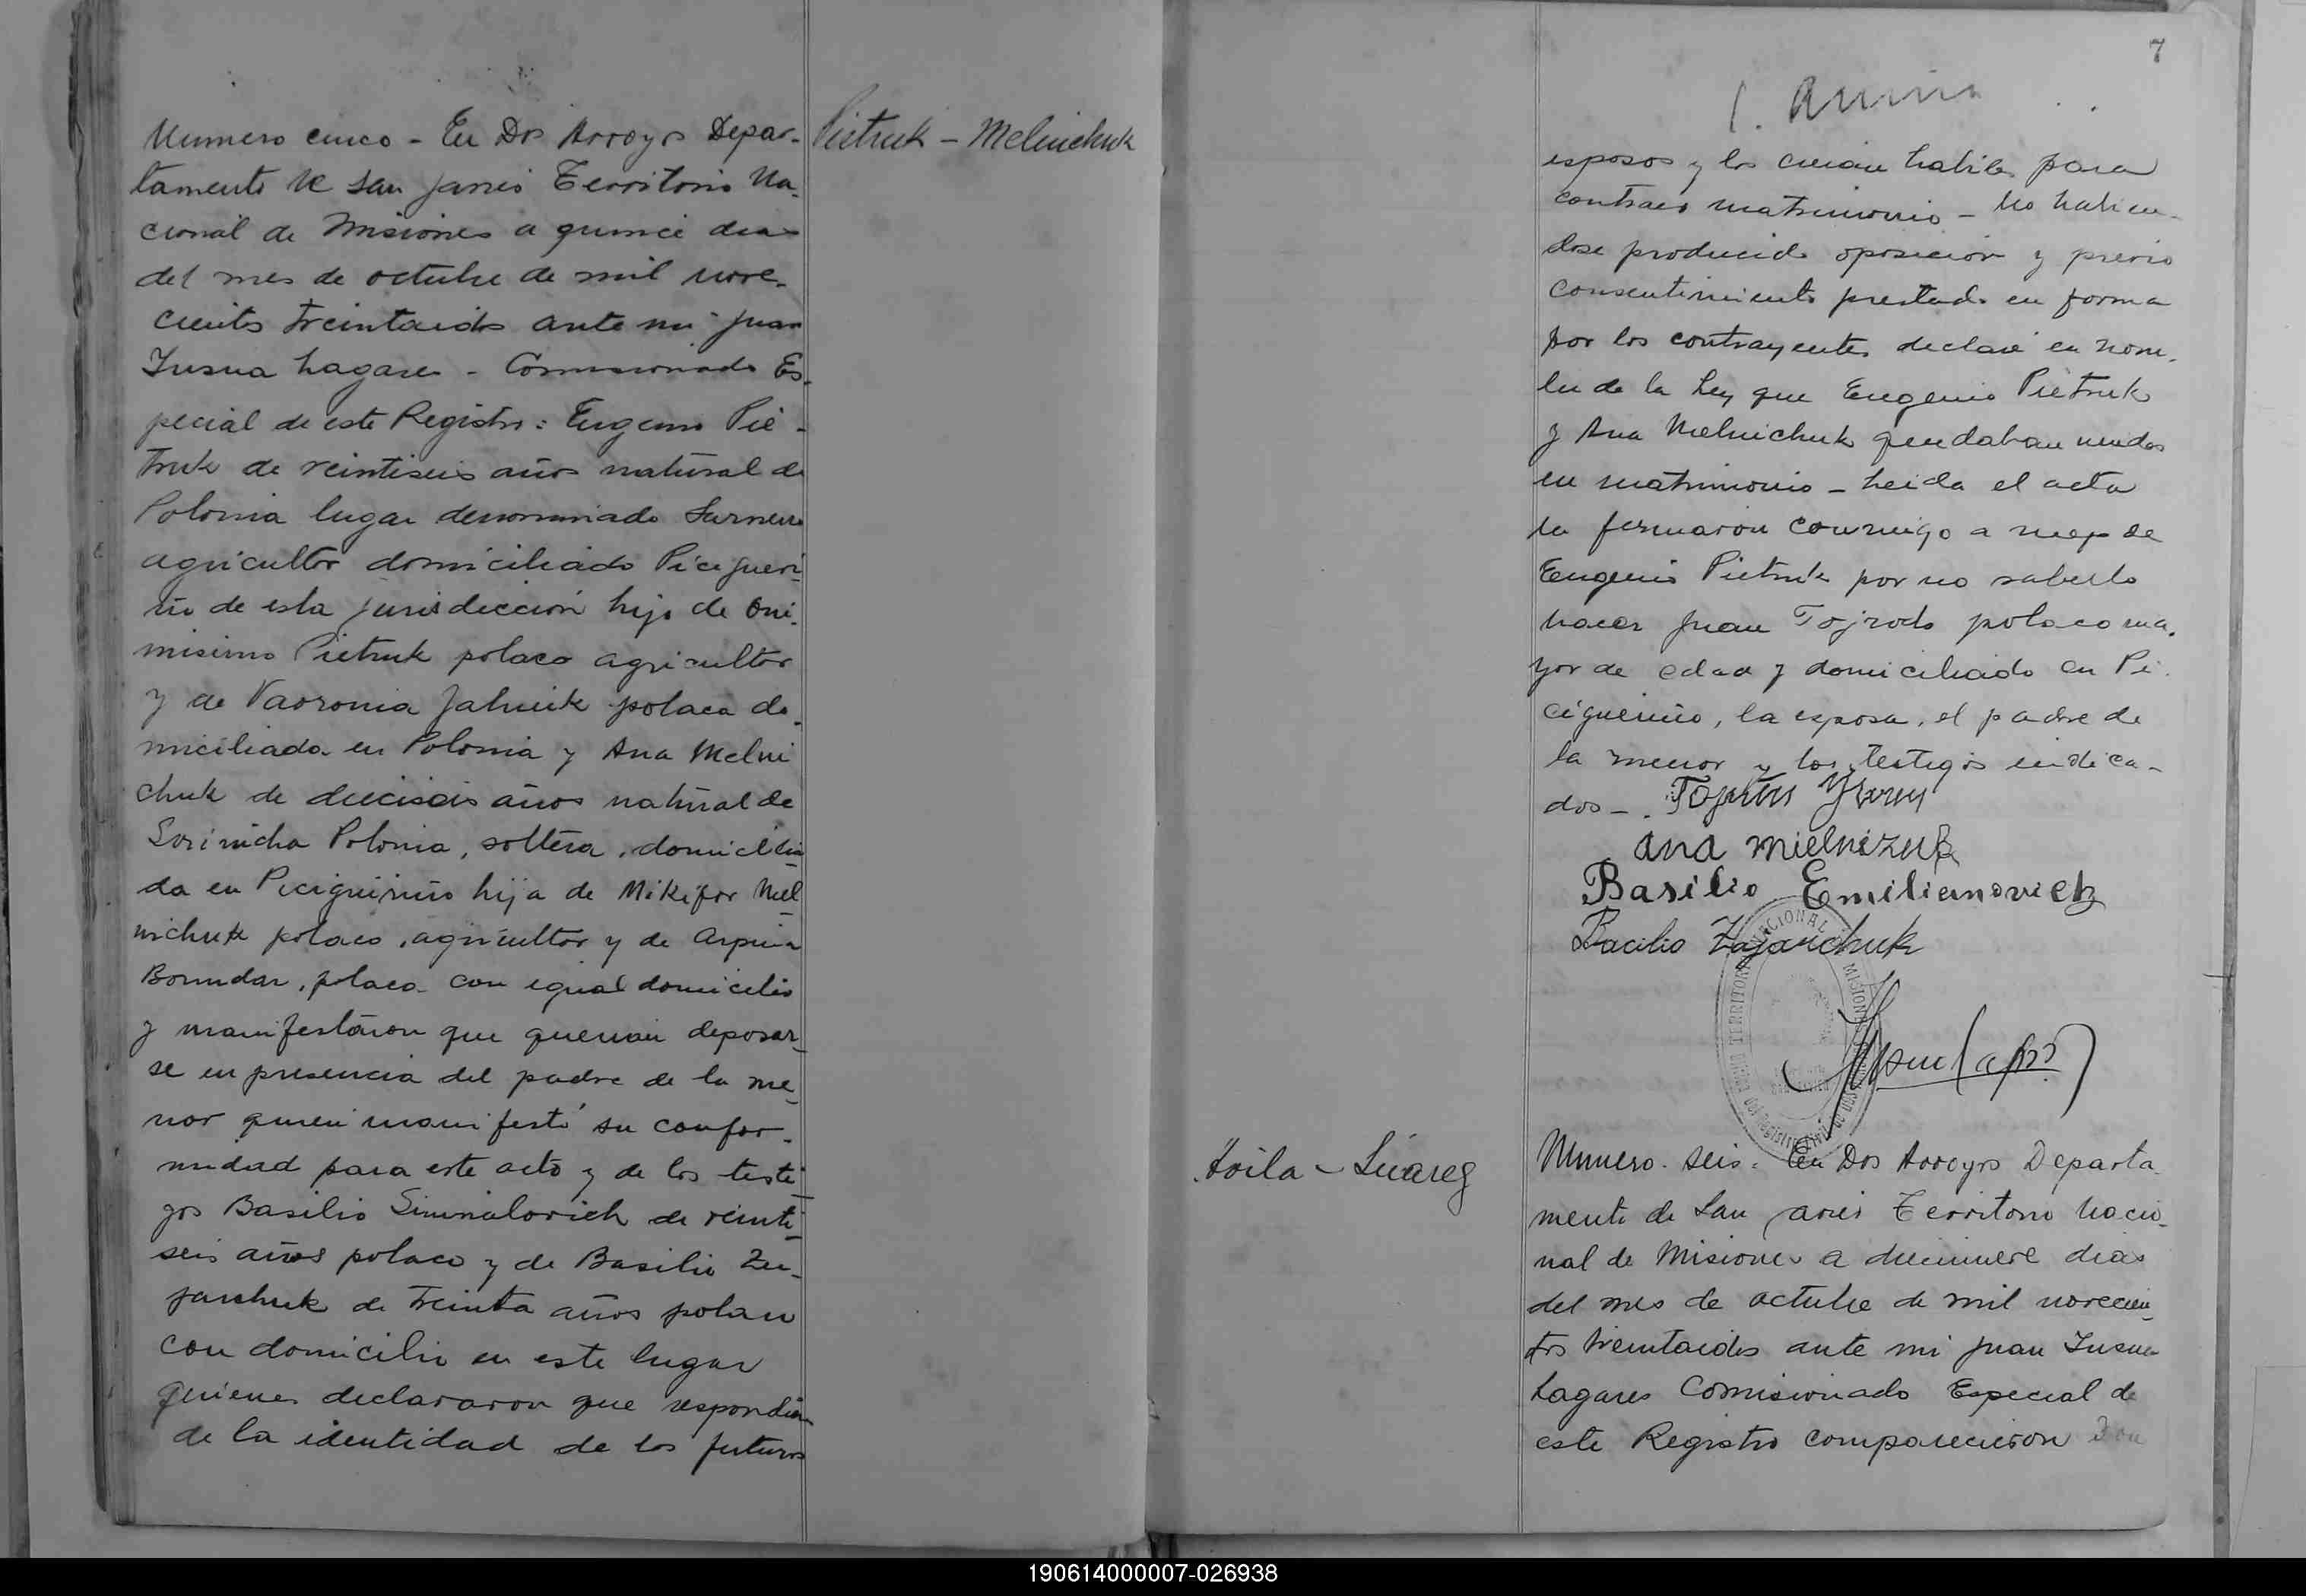 Numero cinco - En Dos Arroyos Depar-
tamento de San Javier Territorio Na-
cional de Misiones a quince dias
del mes de octubre de mil nove-
cientos treintaidos ante mi Juan
Insua Lagares - Comisionado Es-
pecial de este Registro: Eugenio Pie-
truk de veintiseis años natural de
Polonia lugar denominado
agricultor domiciliado Picigueri-
ño de esta jurisdiccion hijo de Oni-
misimo Pietruk polaco agricultor
y de Vaoronia Jahniuk polaca do-
miciliada en Polonia y Ana Melni
chuk de dieciseis años natural de
Polonia, soltera, domicilia
da en Picigüiriño hija de Mikifor Mel
nichuk polaco, agricultor y de Arpina
Bonndar, polaca con igual domicilio
y manifestaron que querian deposar-
se en presencia del padre de la me-
nor quien manifestó su confor-
midad para este acto y de los testi-
gos Basilio de veinti-
seis años polaco y de Basilio Za-
jarchuk de treinta años polaco
con domicilio en este lugar
quienes declararon que respondian
de la identidad de los futuros
Pietruk - Melnichuk
7
esposos y los creian habiles para
contraer matrimonio - No habien-
dose producido oposicion y previo
consentimiento prestado en forma
por los contrayentes declaré en nom-
bre de la Ley que Eugenio Pietruk
y Ana Melnichuk quedaban unidos
en matrimonio - Leida el acta
la firmaron conmigo a ruego de
Eugenio Pietruk por no saberlo
hacer Juan polaco ma-
yor de edad y domiciliado en Pi-
cigueriño, la esposa, el padre de
la menor y los testigos indica-
dos -
Ana Mielniczuk
Basilio Emilianovich
Bacilio Zajarchuk
TERRITORIO NACIONAL MISIONES
Avila - Suarez
Numero seis. En Dos Arroyos Departa-
mento de San Javier Territorio Nacio-
nal de Misiones a diecinueve dias
del mes de octubre de mil novecien-
tos treintaidos ante mi Juan Insua
Lagares Comisionado Especial de
este Registro comparecieron Don
190614000007-026938